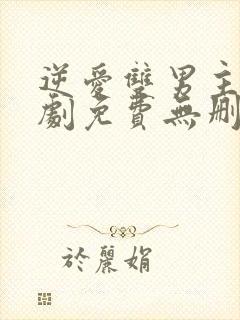 逆愛雙男主
劇免費無刪
於麗娟